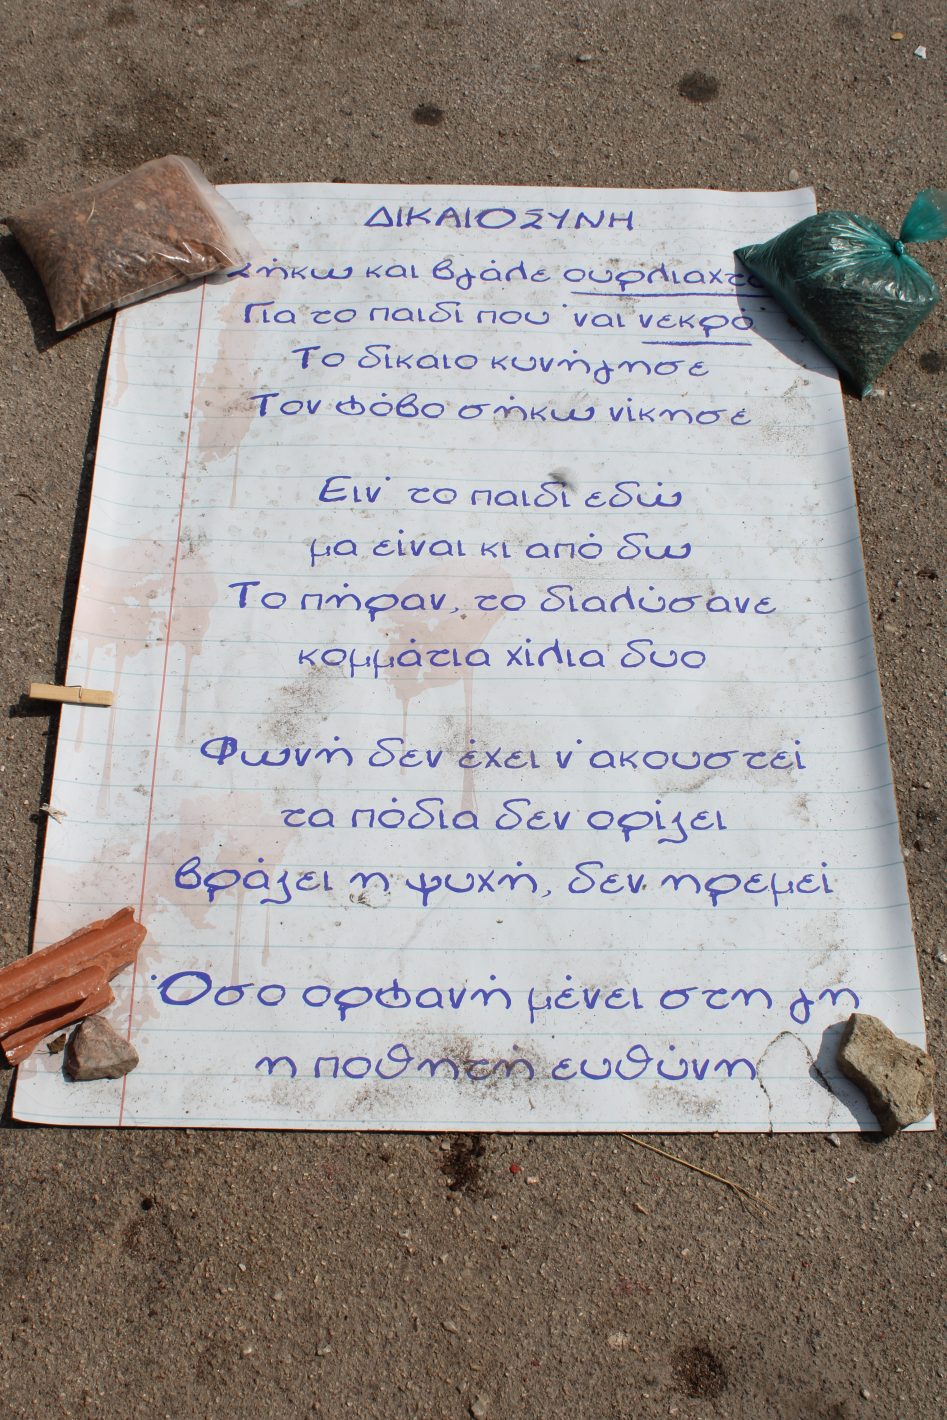 ΔΙΚΑΙΟΣΥΝΗ
Σήκω και βγάλε ουρλιαχτό
Για το παιδί που 'ναι νεκρό
Το δίκαιο κυνήγησε
Τον φόβο σήκω νίκησε
Ειν' το παιδί εδώ
μα είναι κι από δω
Το πήραν, το διαλύσανε
κομμάτια χίλια δυο
Φωνή δεν έχει ν' ακουστεί
τα πόδια δεν ορίζει
βράζει η ψυχή, δεν ηρεμεί
Όσο ορφανή μένει στη γη
η ποθητή ευθύνη